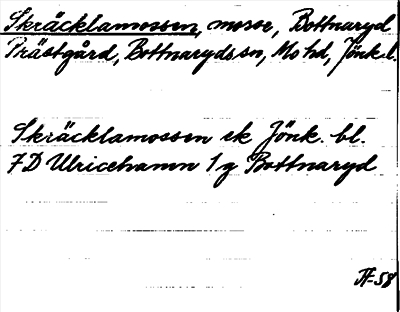 Skräcklamossen, mosse, Bottnaryd
Prästgård, Bottnaryds sn, Mo hd, Jönk.l.
Skräcklamossen ek Jönk. bl.
7D Ulricehamn 1g Bottnaryd
-58